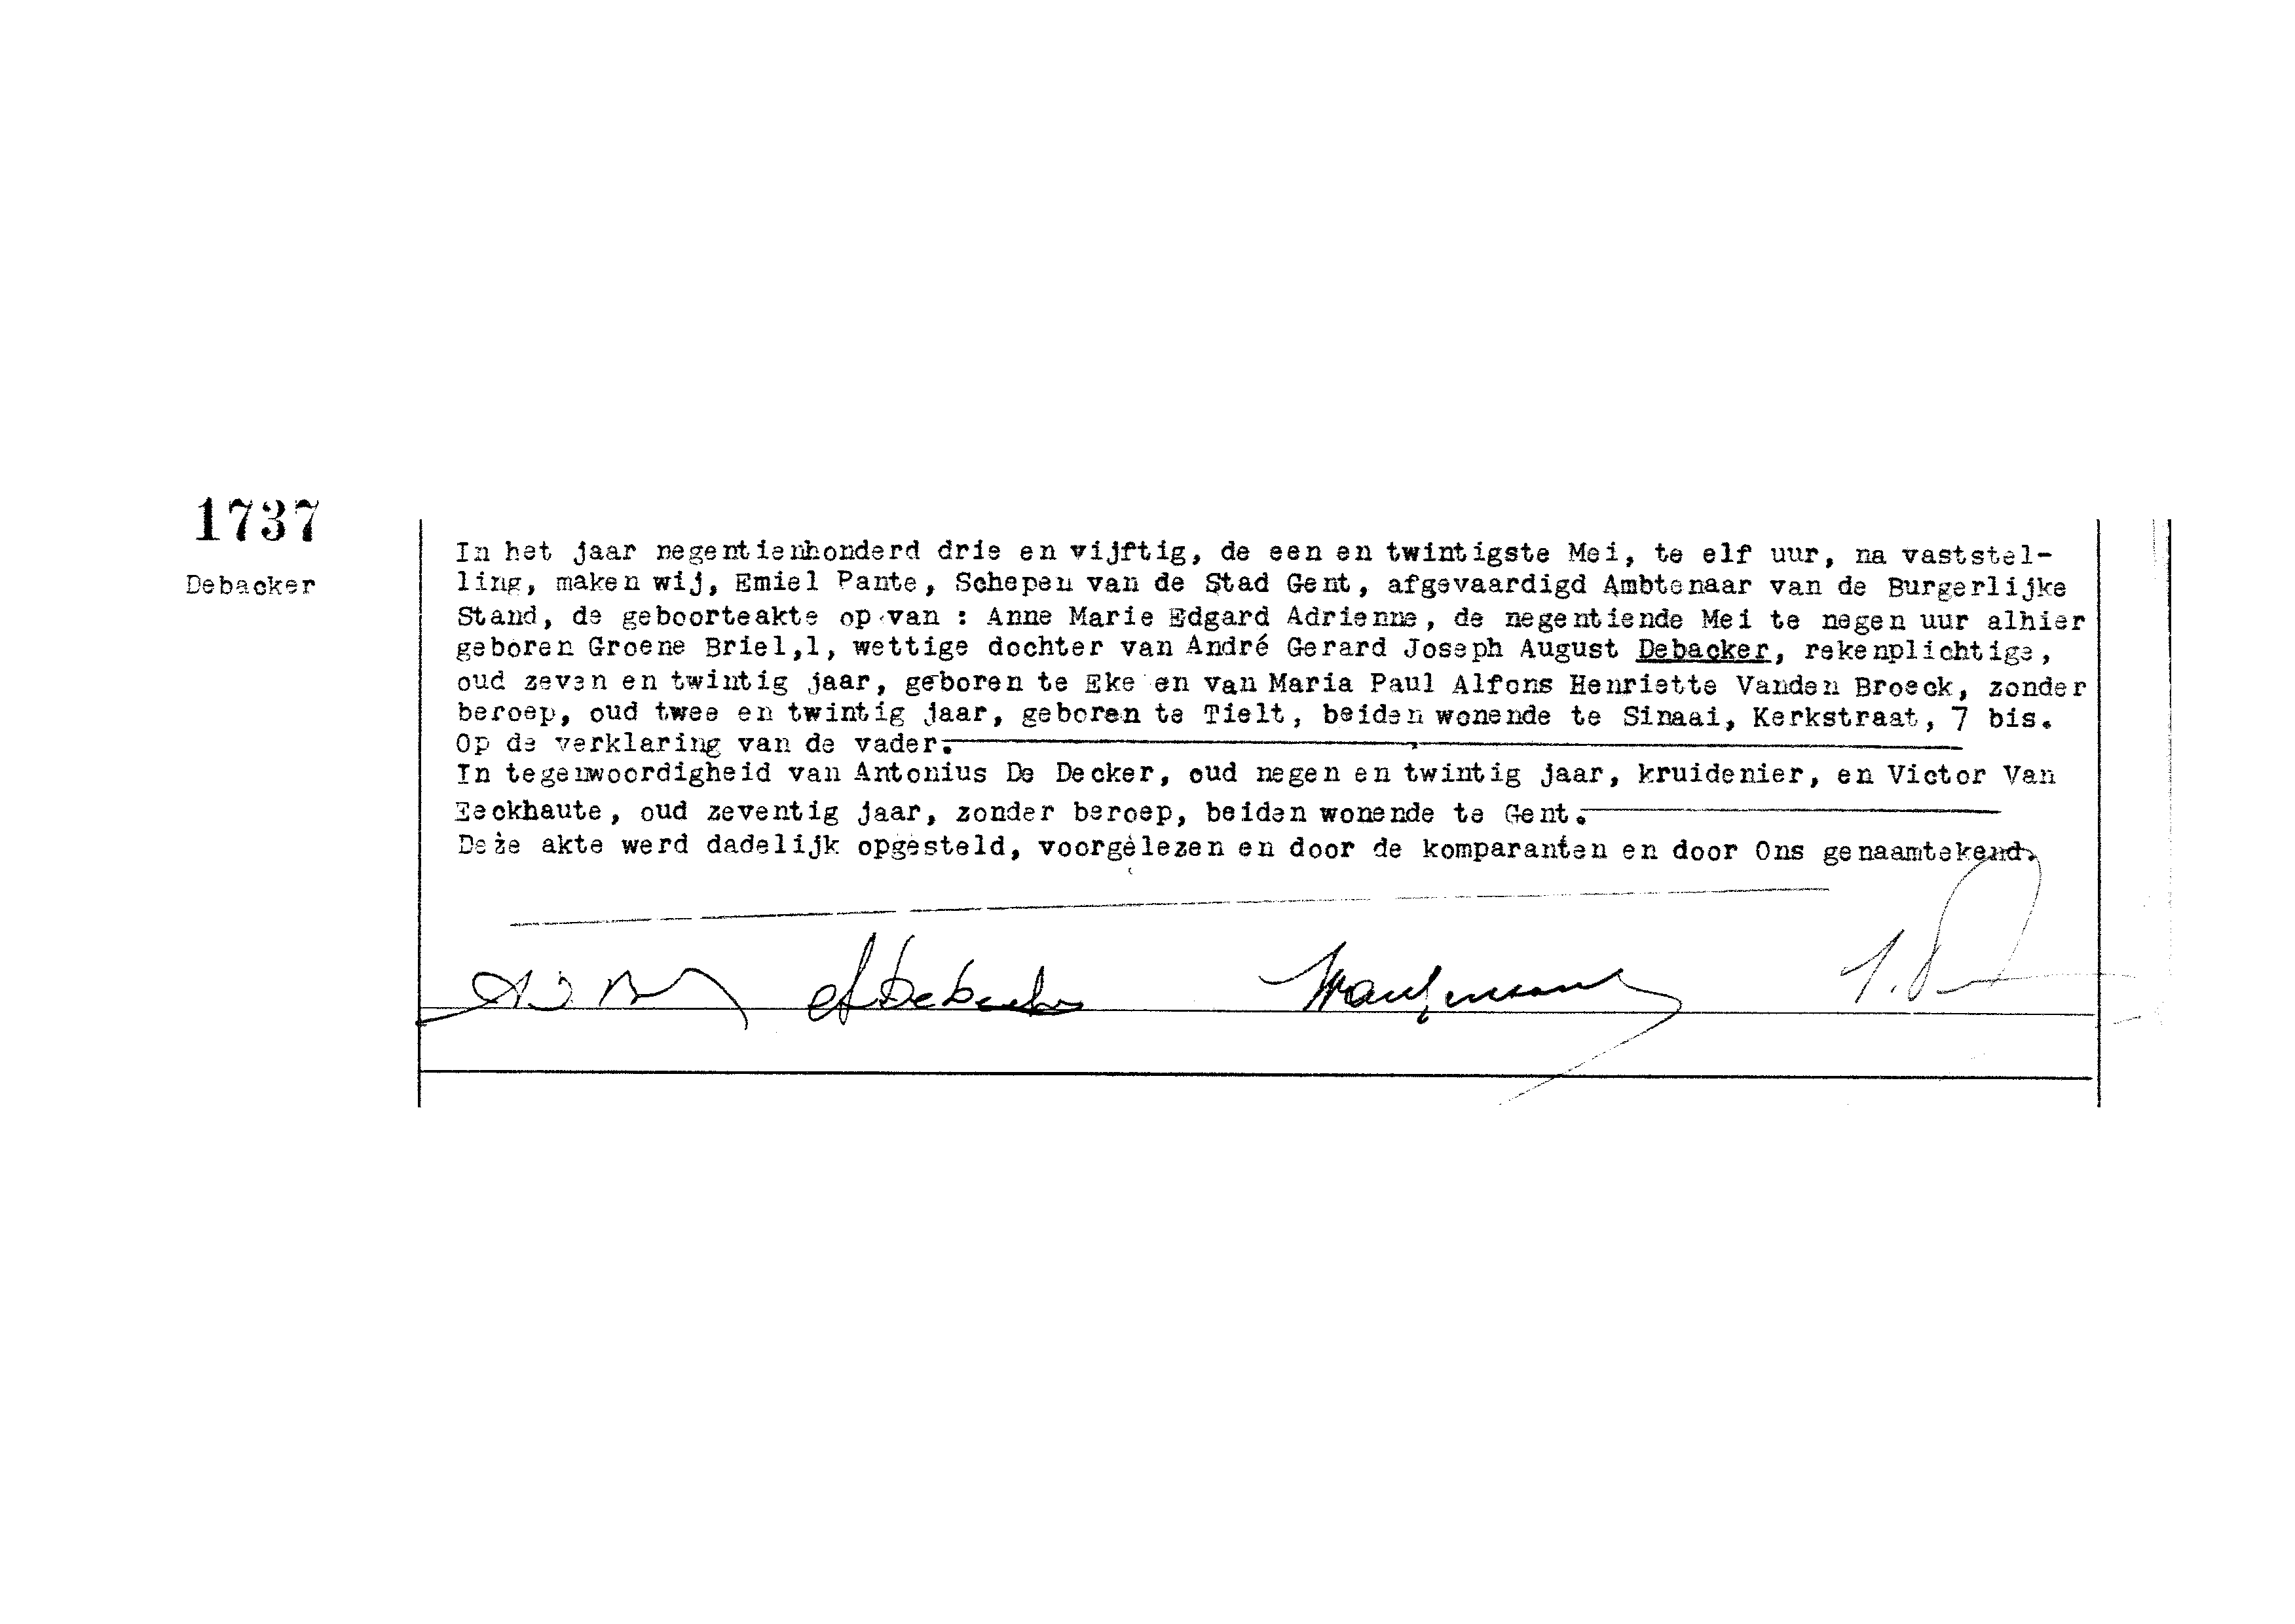 1737
Debacker
In het jaar negentienhonderd drie en vijftig, de een en twintigste Mei, te elf uur, na vaststel-
ling, maken wij, Emiel Pante, Schepen van de Stad Gent, afgevaardigd Ambtenaar van de Burgerlijke
Stand, de geboorteakte op van : Anne Marie Edgard Adrienne, de negentiende Mei te negen uur alhier
geboren Groene Briel,1, wettige dochter van André Gerard Joseph August Debacker, rekenplichtige,
oud zeven en twintig jaar, geboren te Eke en van Maria Paul Alfons Henriette Vanden Broeck, zonder
beroep, oud twee en twintig jaar, geboren te Tielt, beiden wonende te Sinaai, Kerkstraat, 7 bis.
Op de verklaring van de vader.
In tegenwoordigheid van Antonius De Decker, oud negen en twintig jaar, kruidenier, en Victor Van
Eeckhaute, oud zeventig jaar, zonder beroep, beiden wonende te Gent.
Deze akte werd dadelijk opgesteld, voorgelezen en door de komparanten en door Ons genaamtekend.